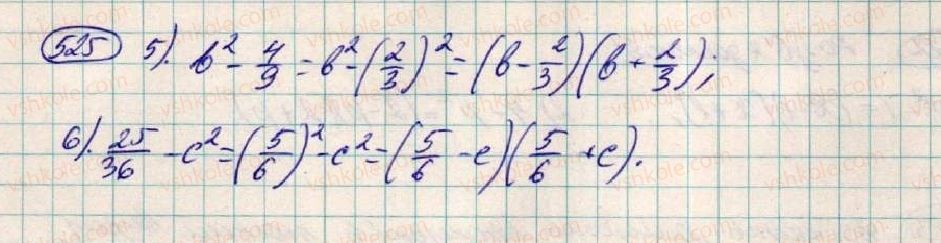 525 5). b² - 4/9 = b² - (2/3)² = (b - 2/3)(b + 2/3);
6). 25/36 - c² = (5/6)² - c² = (5/6 - c)(5/6 + c).
vshkole.com